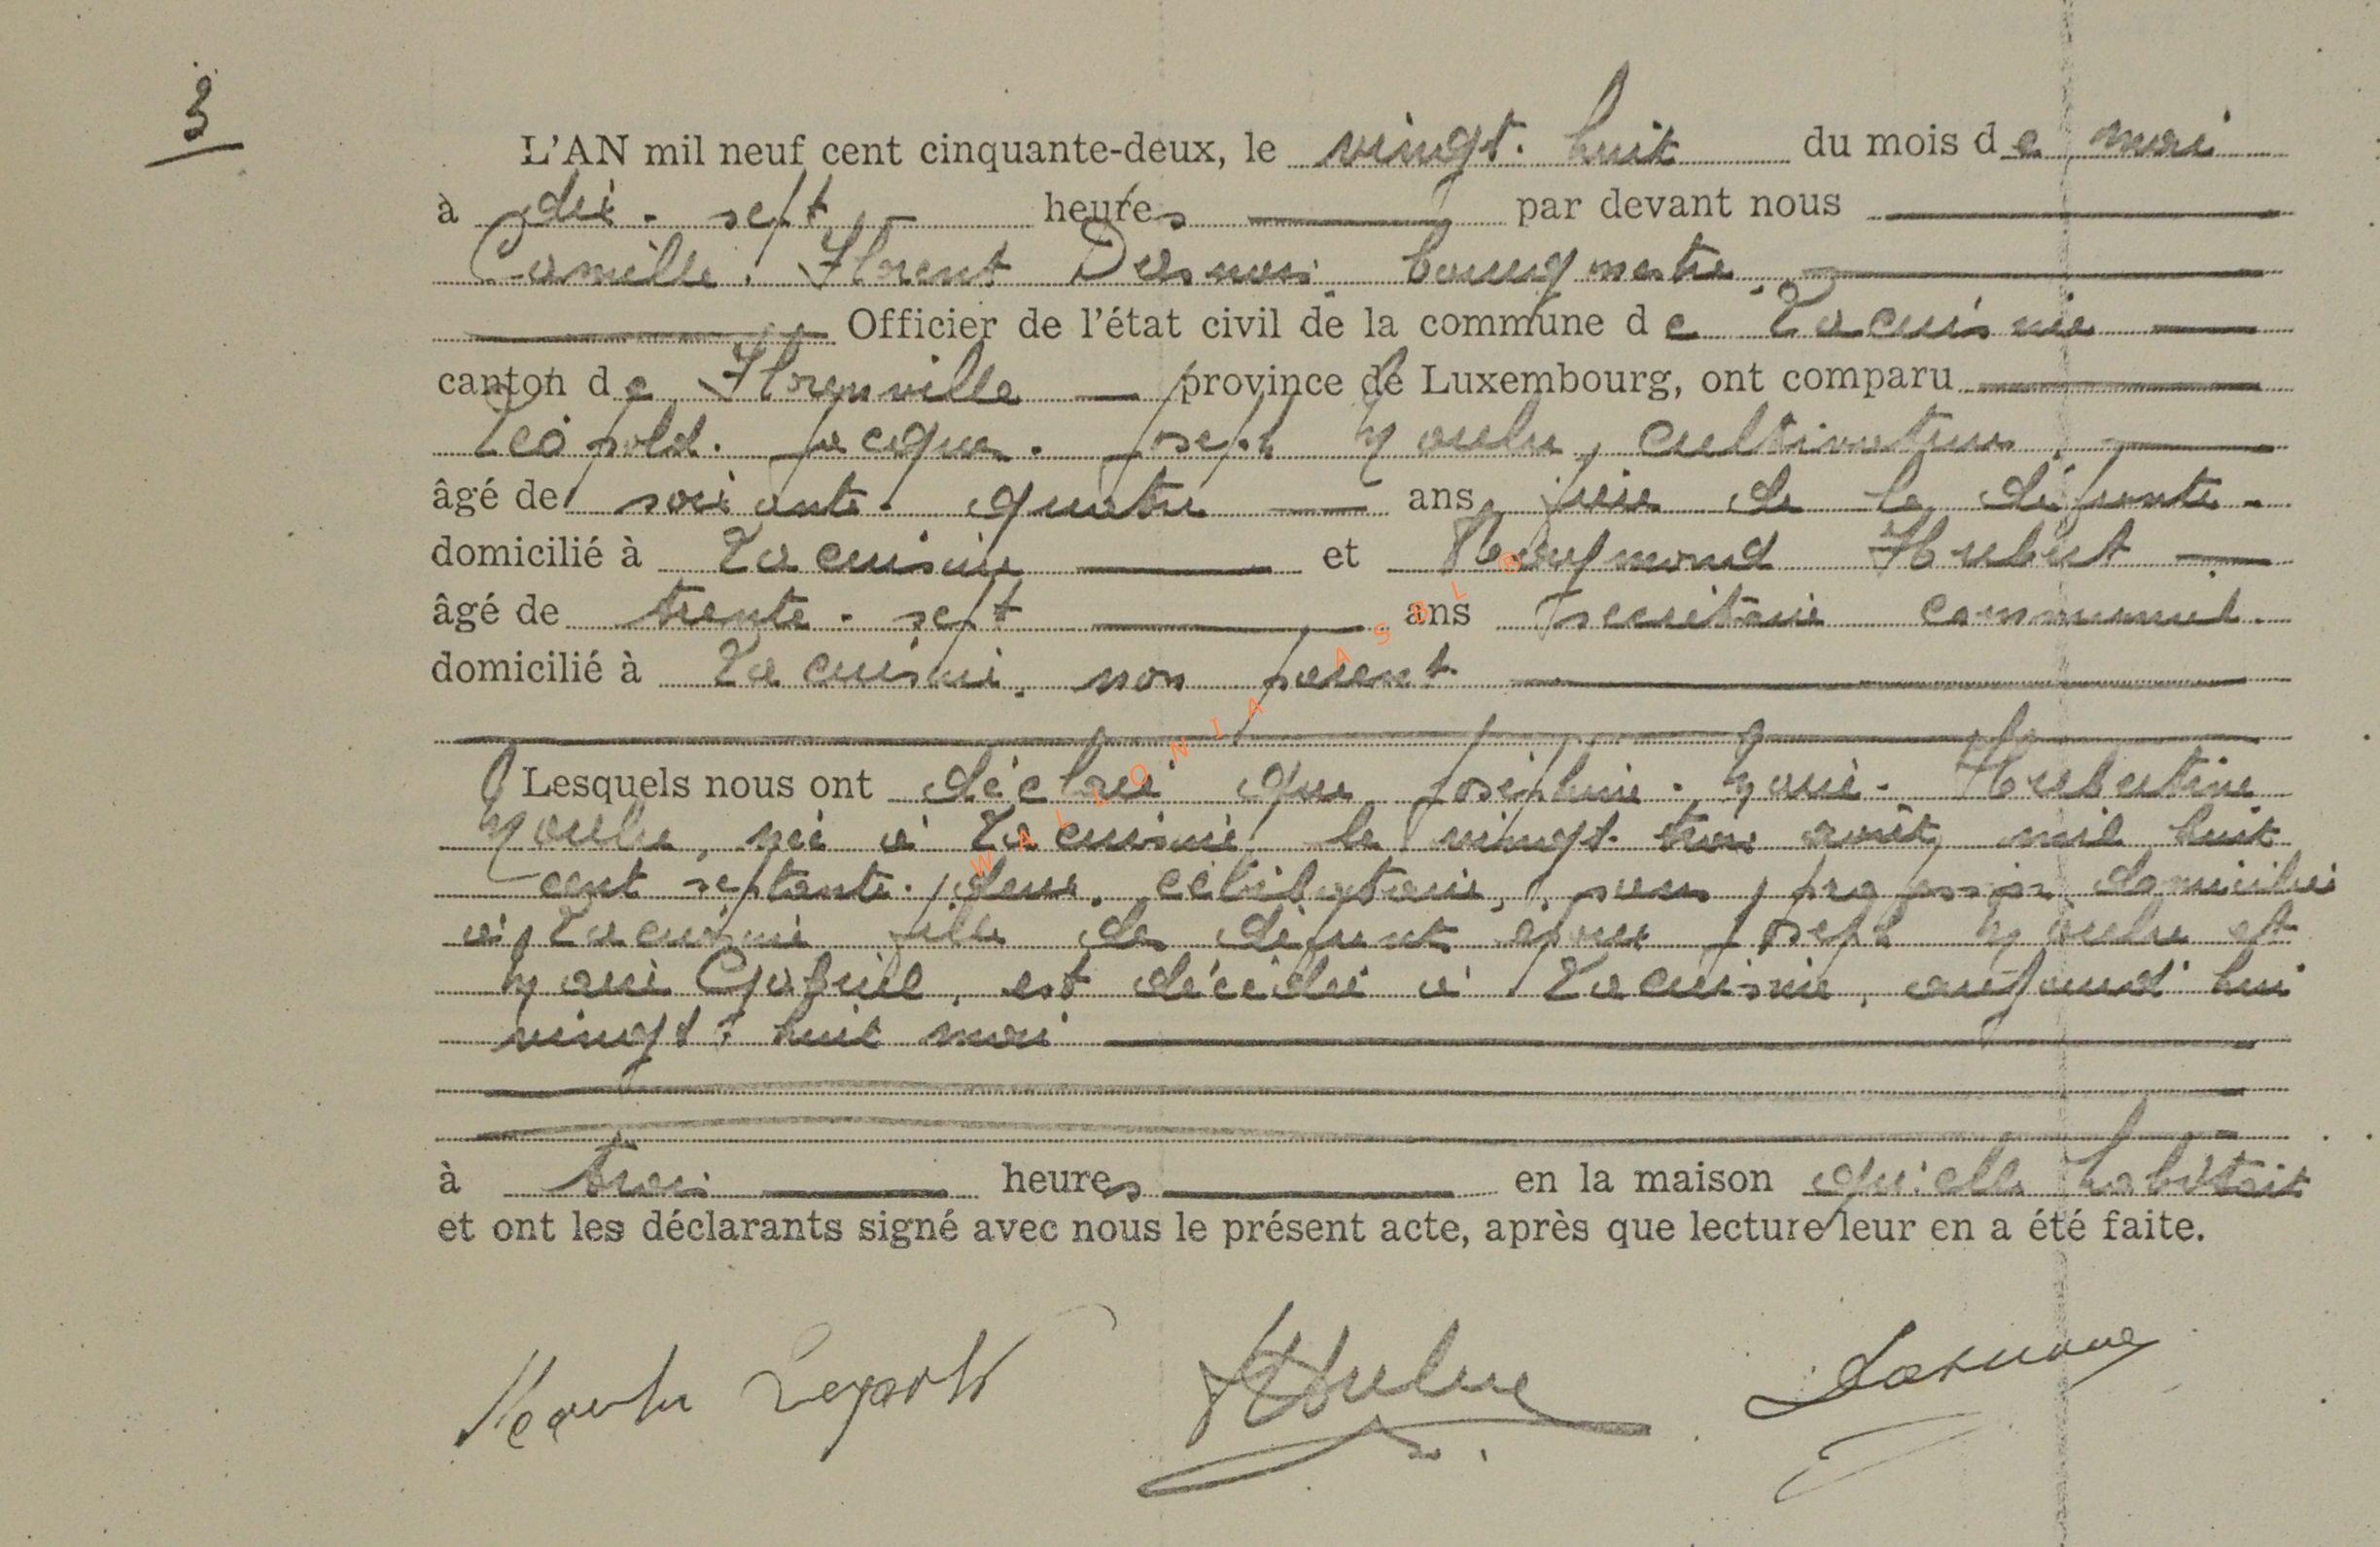 3
L'AN mil neuf cent cinquante-deux, le vingt-huit du mois de mai
à dix-sept heures par devant nous
Camille-Florent Dasnois, bourgmestre,
Officier de l'état civil de la commune de Lacuisine
canton de Florenville province de Luxembourg, ont comparu
Léopold-Jacques-Joseph cultivateur,
âgé de soixante-quatre ans, de la défunte
domicilié à Lacuisine et Raymond Hubert
âgé de trente-sept ans secrétaire communal
domicilié à Lacuisine, non parent
Lesquels nous ont déclaré que Joséphine-Marie-Hubertine
née à Lacuisine, le vingt-trois août mil huit
cent septante-deux, célibataire, sans profession domiciliée
à Lacuisine fille des défunts époux Joseph et
Marie Gabriel, est décédée à Lacuisine, aujourd'hui
vingt-huit mai
à trois heures en la maison qu'elle habitait
et ont les déclarants signé avec nous le présent acte, après que lecture leur en a été faite.
WALLONIA ASBL